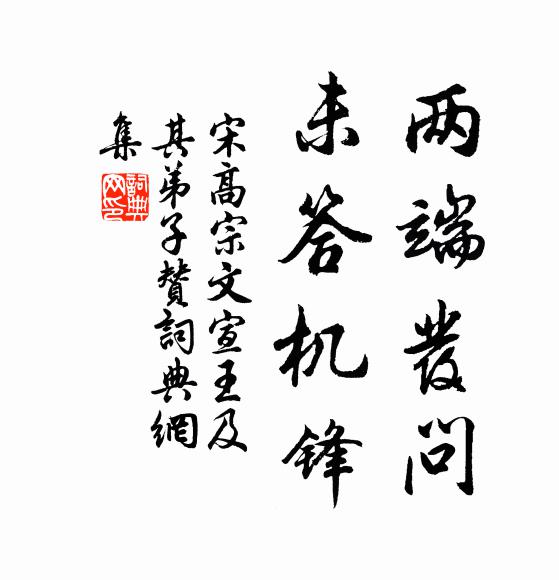 两端發问
未答机锋
宋高宗文宣王及
其弟子赞詞典網
集
詞典
网印